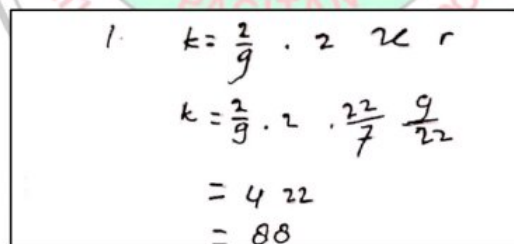 1. k = 2/9 . 2 π r
k = 2/9 . 2 . 22/7 9/22
= 4 22
= 88